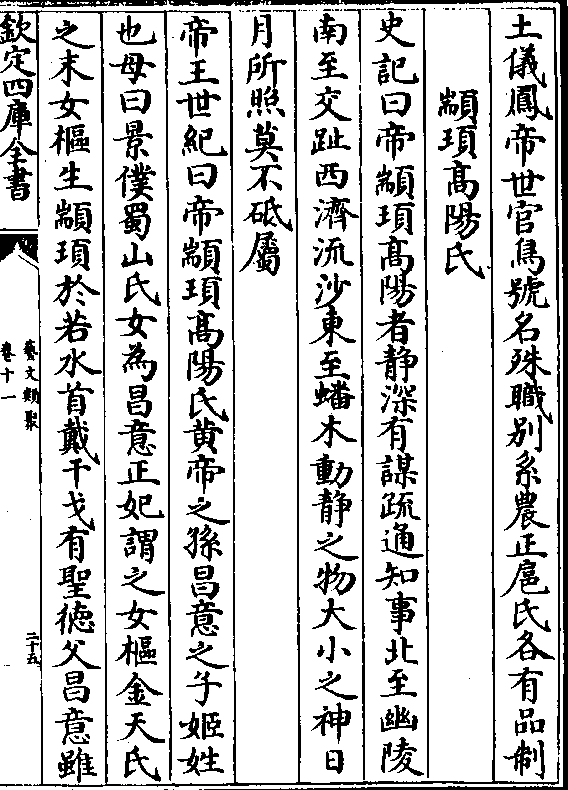 土儀鳳帝世官鳥號名殊職別系農正扈氏各有品制
顓頊髙陽氏
史記曰帝顓頊髙陽者静深有謀疏通知事北至幽陵
南至交趾西濟流沙東至蟠木動靜之物大小之神日
月所照莫不砥屬
帝王世紀曰帝顓頊髙陽氏黄帝之孫昌意之子姬姓
也母曰景僕蜀山氏女為昌意正妃謂之女樞金天氏
之末女樞生顓頊於若水首戴干戈有聖徳父昌意雖
欽定四庫全書
藝文類聚
卷十一
二十五